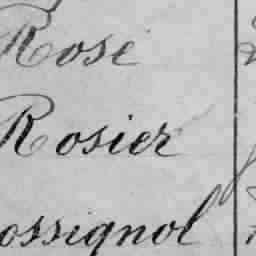 Rose
Rosier
ossignol